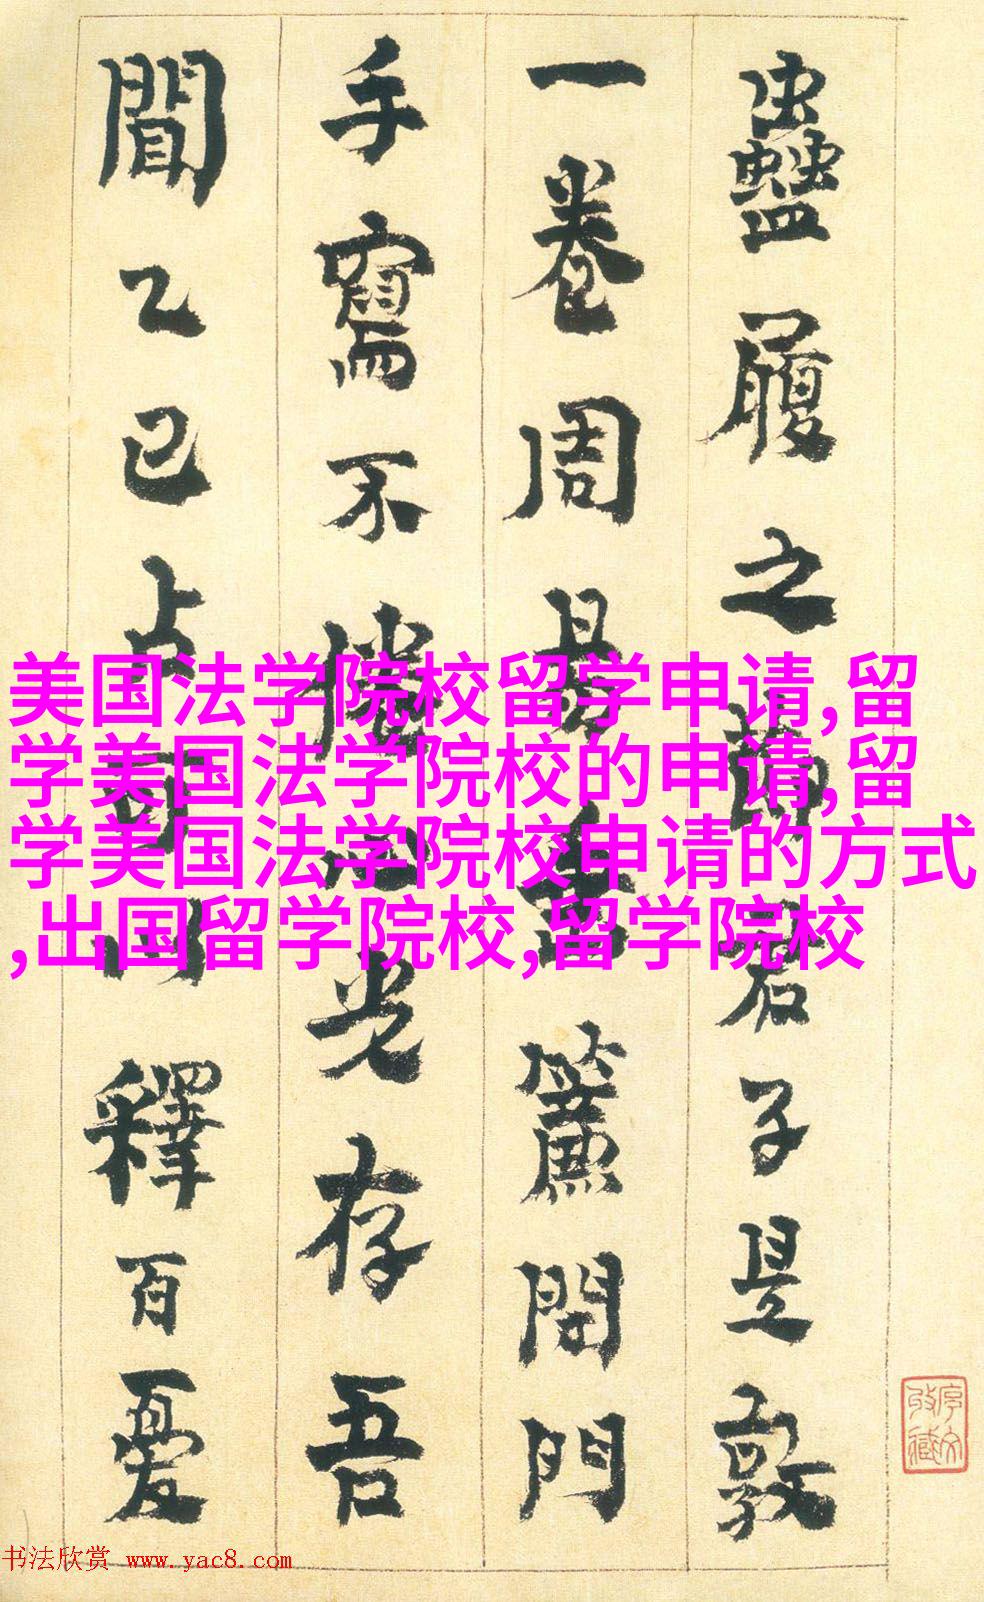 蠱履之君子是敦
一卷周易垂簾閉門
手寫不光存吾
乙巳釋百憂
美国法学院校留学申请,留
学美国法学院校的申请,留
学美国法学院校申请的方式
,出国留学院校,留学院校
书法欣赏 www.yac8.com